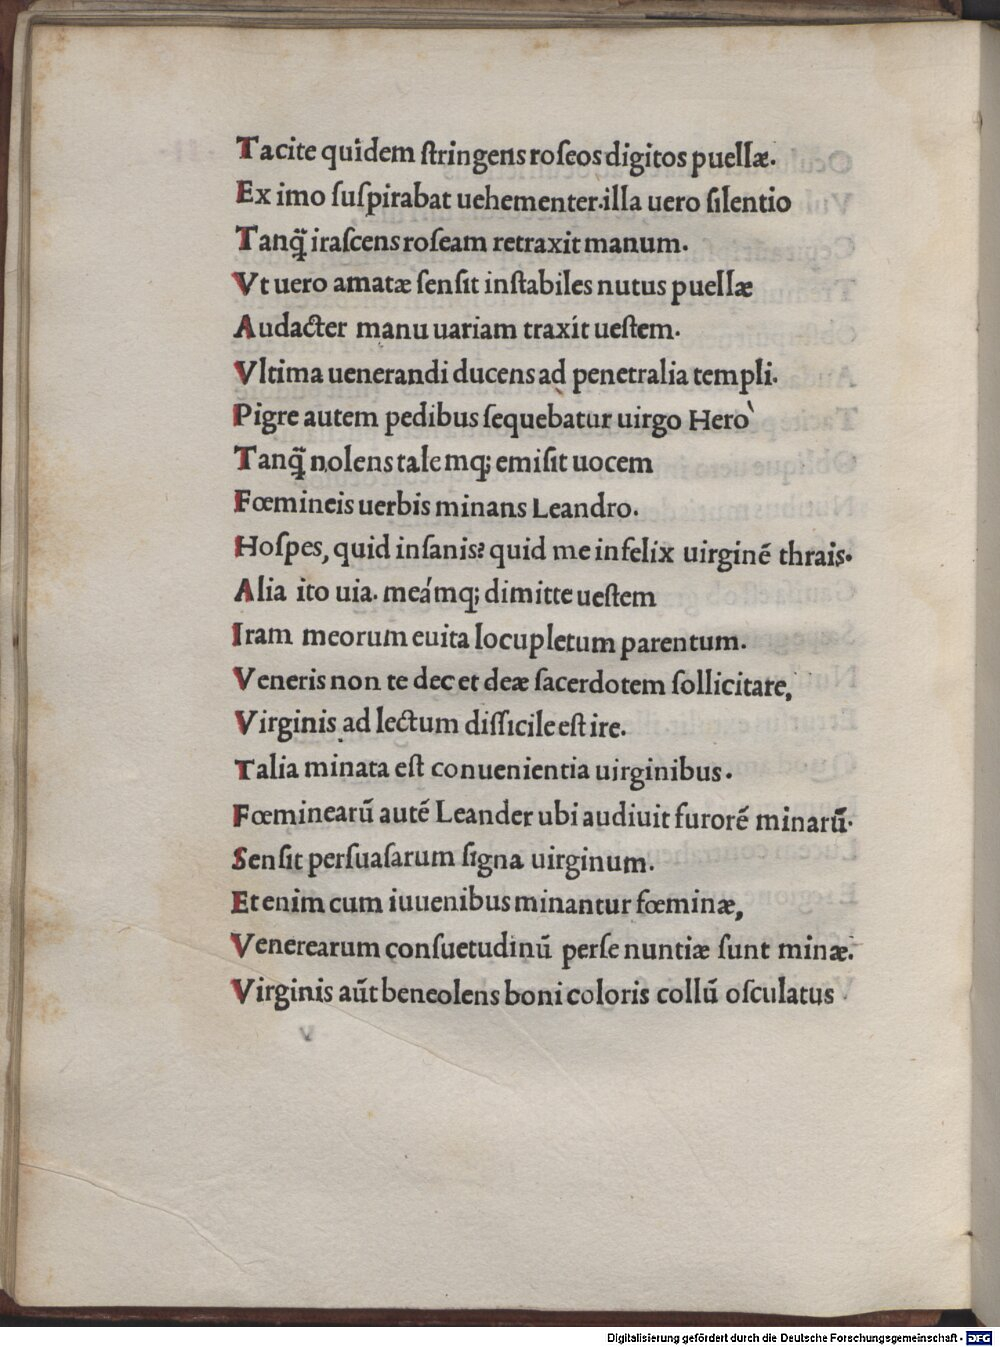 Tacite quidem ſtringens roſeos digitos puellæ.
Ex imo ſuſpirabat uehementer.illa uero ſilentio
Tanq̃ iraſcens roſeam retraxit manum.
Vt uero amatæ ſenſit inſtabiles nutus puellæ
Audacter manu uariam traxit ueſtem.
Vltima uenerandi ducens ad penetralia templi.
Pigre autem pedibus ſequebatur uirgo Hero`
Tanq̃ nolens talemq; emiſit uocem
Fœmineis uerbis minans Leandro.
Hoſpes, quid inſanis? quid me infelix uirginē thrais.
Alia ito uia. meámq; dimitte ueſtem
Iram meorum euita locupletum parentum.
Veneris non te decet deæ ſacerdotem ſollicitare,
Virginis ad lectum difficile eſt ire.
Talia minata eſt conuenientia uirginibus.
Fœminearū autē Leander ubi audiuit furorē minarū.
Senſit perſuaſarum ſigna uirginum.
Etenim cum iuuenibus minantur fœminæ,
Venerearum conſuetudinū perſe nuntiæ ſunt minæ.
Virginis aūt beneolens boni coloris collū oſculatus
v
Digitalisierung gefördert durch die Deutsche Forschungsgemeinschaft - DFG